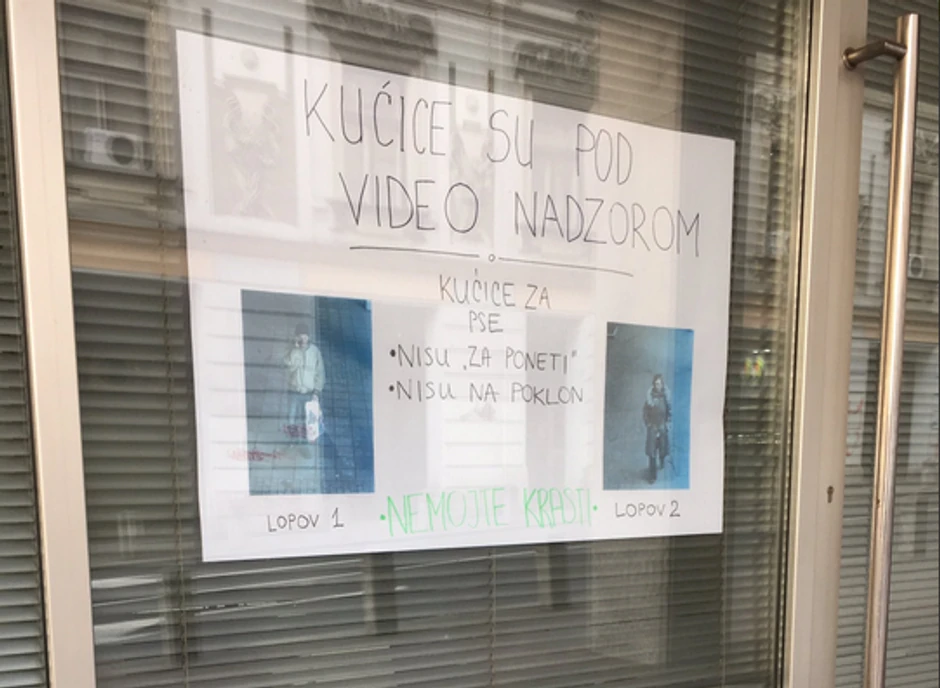 KUĆICE SU POD
VIDEO NADZOROM
KUĆICE ZA
PSE
•NISU „ZA PONETI"
•NISU NA POKLON
•NEMOJTE KRASTI•
LOPOV 1
LOPOV 2